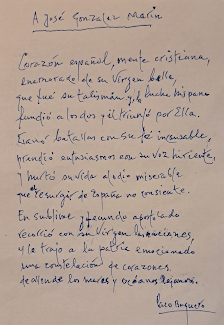 A José González Marín
Corazón español, mente cristiana,
enamorado de su Virgen bella,
que fué su talismán, y la lucha hispana
fundió a todos y él triunfó por Ella.
Ganó batallas con su fé incansable,
prendió entusiasmos con su voz hiriente,
y hurtó su vida al odio miserable
que el resurgir de España no consiente.
En sublime y fecundo apostolado
recorrió con su Virgen las naciones,
y le trajo a la patria emocionado
una constelación de corazones
desde los mares y océanos lejanos.